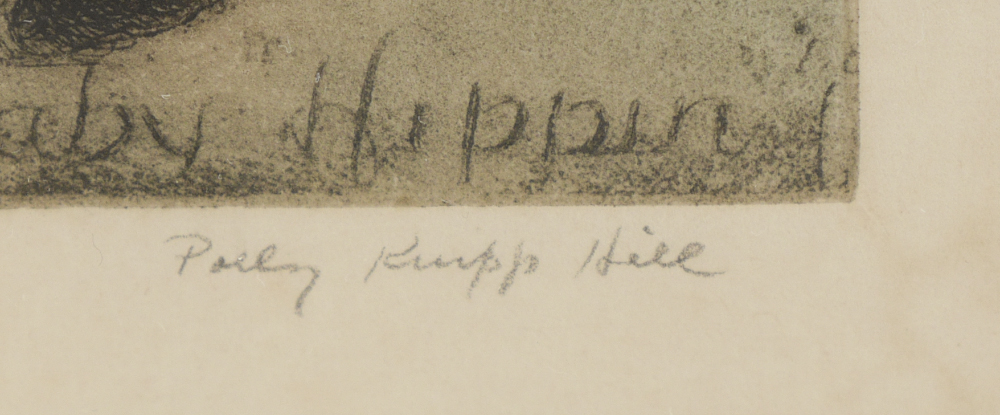 aby Hippin
Polly Knipp Hill